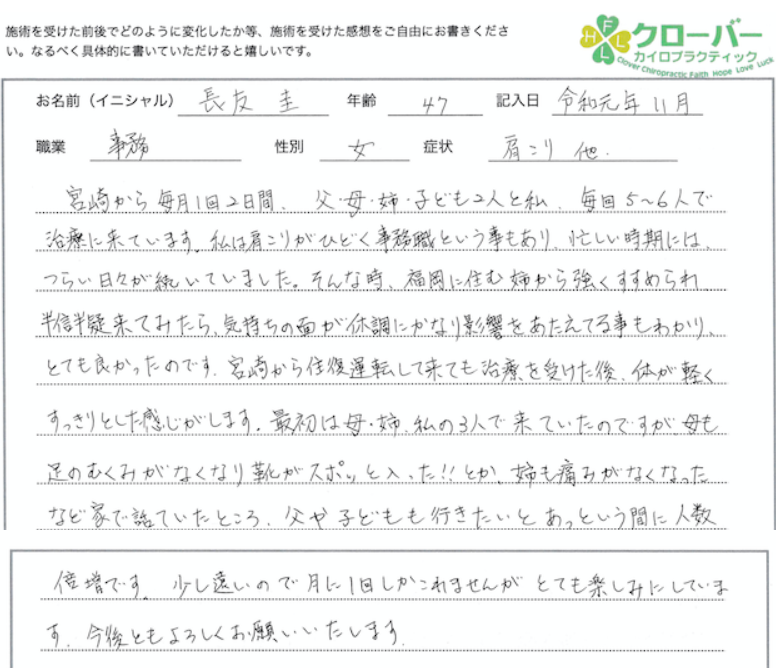 施術を受けた前後でどのように変化したか等、施術を受けた感想をご自由にお書きくださ
い。なるべく具体的に書いていただけると嬉しいです。
FHLL クローバー
カイロプラクティック
Clover Chiropractic Faith Hope Love Luck
お名前（イニシャル） 長友 圭 年齢 47 記入日 令和元年 11月
職業 事務 性別 女 症状 肩こり 他.
宮崎から毎月1回2日間、父・母・姉・子ども2人と私、毎回5〜6人で
治療に来ています。私は肩こりがひどく事務職という事もあり、忙しい時期には、
つらい日々が続いていました。そんな時、福岡に住む姉から強くすすめられ
半信半疑来てみたら、気持ちの面が体調にかなり影響をあたえてる事もわかり、
とても良かったのです。宮崎から往復運転して来ても治療を受けた後、体が軽く
すっきりとした感じがします。最初は母・姉、私の3人で来ていたのですが、母も
足のむくみがなくなり靴がスポッと入った!!とか、姉も痛みがなくなった
など家で話ていたところ、父や子どもも行きたいとあっという間に人数
倍増です。少し遠いので月に1回しかこれませんがとても楽しみにしていま
す。今後ともよろしくお願いいたします。